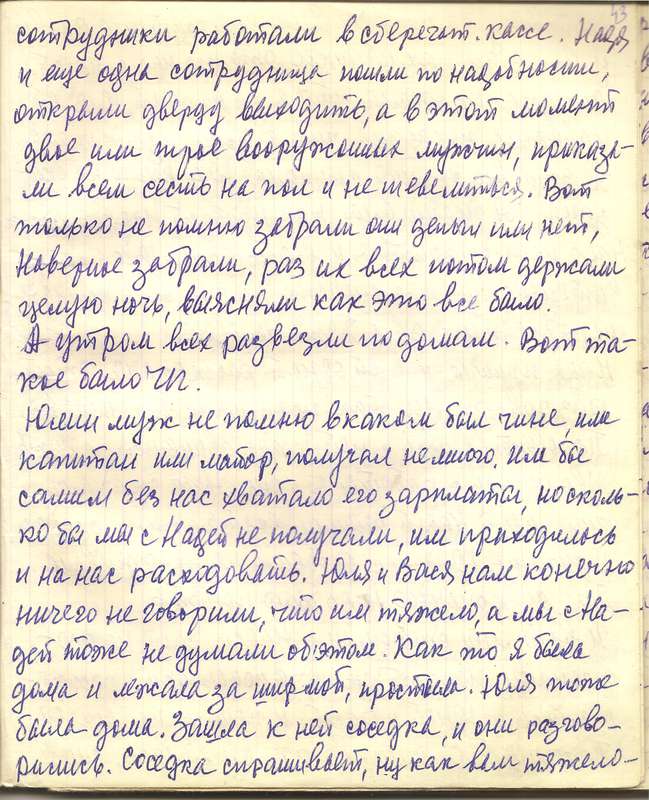 43
сотрудники работали в сберегат. кассе. Надя
и еще одна сотрудница пошли по надобности,
открыли дверду выходить, а в этот момент
двое или трое вооружонных мужчин, приказа-
ли всем сесть на пол и не шевелиться. Вот
только не помню забрали они деньги или нет,
Наверное забрали, раз их всех потом держали
целую ночь, выясняли как это все было.
А утром всех развезли по домам. Вот та-
кое было ЧП.
Юлин муж не помню в каком был чине, или
капитан или майор, получал немного. Им бы
самим без нас хватало его зарплаты, но сколь-
ко бы мы с Надей не получали, им приходилось
и на нас расходовать. Юля и Вася нам конечно
ничего не говорили, что им тяжело, а мы с На-
дей тоже не думали об этом. Как то я была
дома и лежала за ширмой, простыла. Юля тоже
была дома. Зашла к ней соседка, и они разгово-
рились. Соседка спрашивает, ну как вам тяжело-